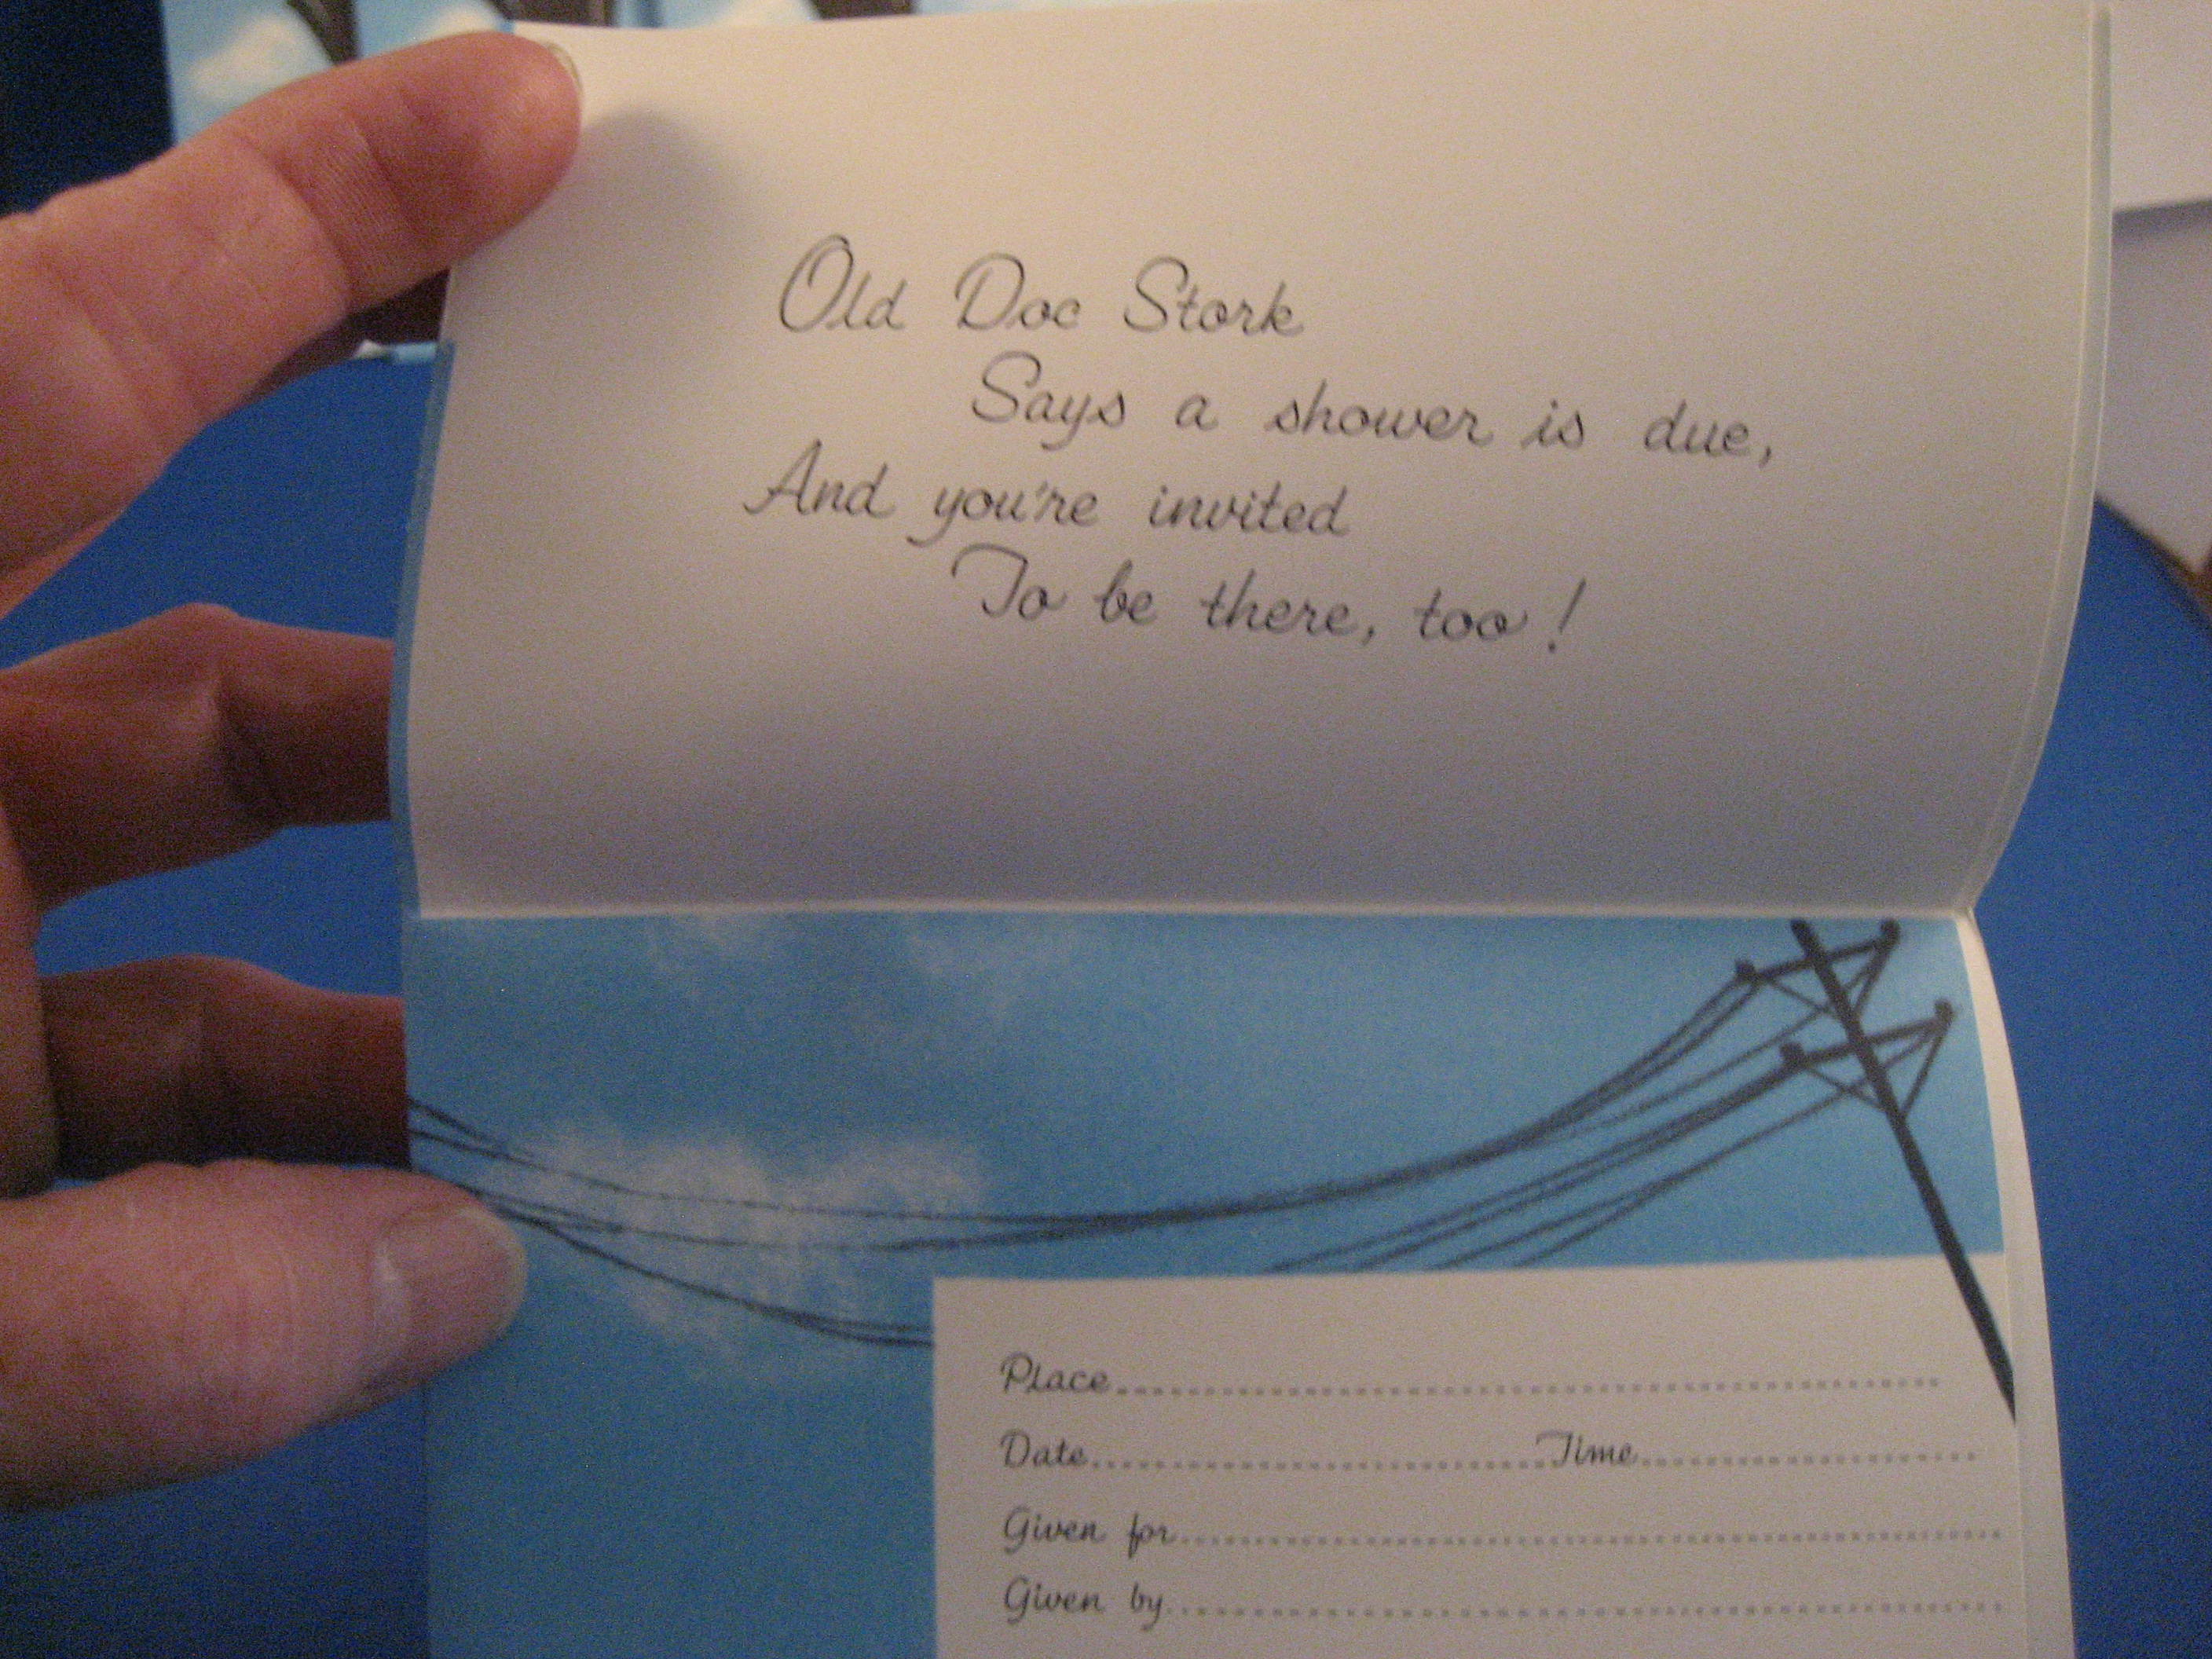 Old Doc Stork
Says a shower is due,
And you're invited
To be there, too!
Place
Date Time
Given for
Given by